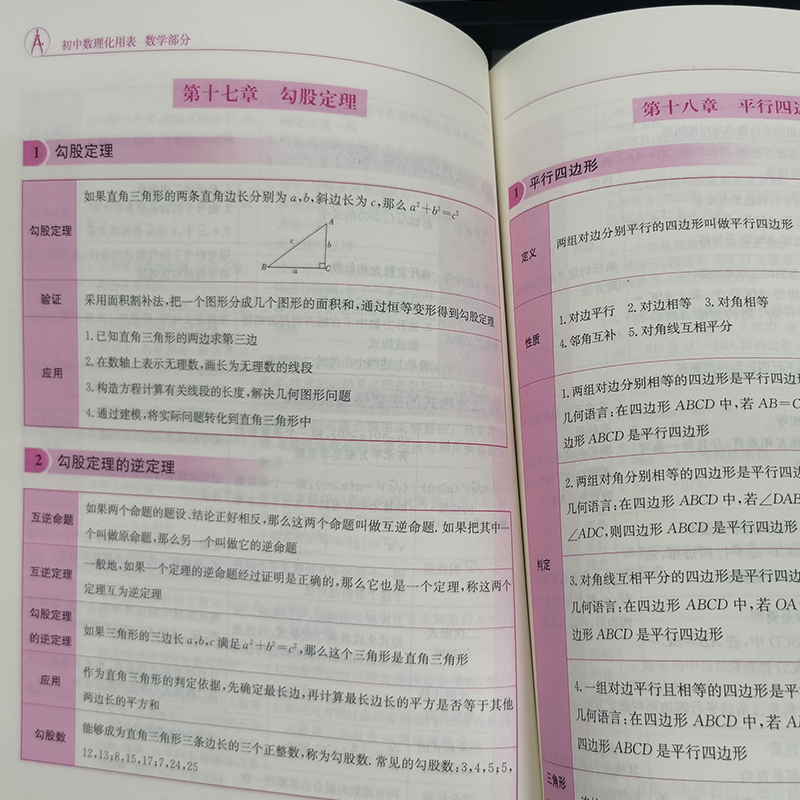 初中数理化用表 数学部分
第十七章 勾股定理
1 勾股定理
勾股定理
如果直角三角形的两条直角边长分别为a,b,斜边长为c,那么a²+b²=c²
A
c
b
B
a
C
验证
采用面积割补法,把一个图形分成几个图形的面积和,通过恒等变形得到勾股定理
应用
1.已知直角三角形的两边求第三边
2.在数轴上表示无理数,画长为无理数的线段
3.构造方程计算有关线段的长度,解决几何图形问题
4.通过建模,将实际问题转化到直角三角形中
2 勾股定理的逆定理
互逆命题
如果两个命题的题设、结论正好相反,那么这两个命题叫做互逆命题.如果把其中一
个叫做原命题,那么另一个叫做它的逆命题
互逆定理
一般地,如果一个定理的逆命题经过证明是正确的,那么它也是一个定理,称这两个
定理互为逆定理
勾股定理
的逆定理
如果三角形的三边长a,b,c满足a²+b²=c²,那么这个三角形是直角三角形
应用
作为直角三角形的判定依据,先确定最长边,再计算最长边长的平方是否等于其他
两边长的平方和
勾股数
能够成为直角三角形三条边长的三个正整数,称为勾股数.常见的勾股数:3,4,5;5,
12,13;8,15,17;7,24,25
第十八章 平行四边
1 平行四边形
定义
两组对边分别平行的四边形叫做平行四边形
性质
1.对边平行 2.对边相等 3.对角相等
4.邻角互补 5.对角线互相平分
判定
1.两组对边分别相等的四边形是平行四边形
几何语言:在四边形ABCD中,若AB=C
边形ABCD是平行四边形
2.两组对角分别相等的四边形是平行四边形
几何语言:在四边形ABCD中,若∠DAB
∠ADC,则四边形ABCD是平行四边形
3.对角线互相平分的四边形是平行四边
几何语言:在四边形ABCD中,若OA
边形ABCD是平行四边形
4.一组对边平行且相等的四边形是平
几何语言:在四边形ABCD中,若A
四边形ABCD是平行四边形
三角形